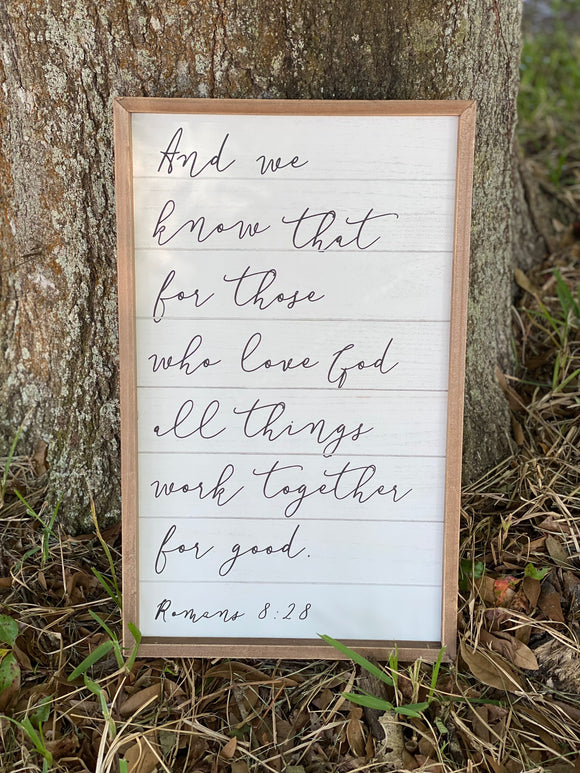 And we
know that
for those
who love God
all things
work together
for good.
Romans 8:28